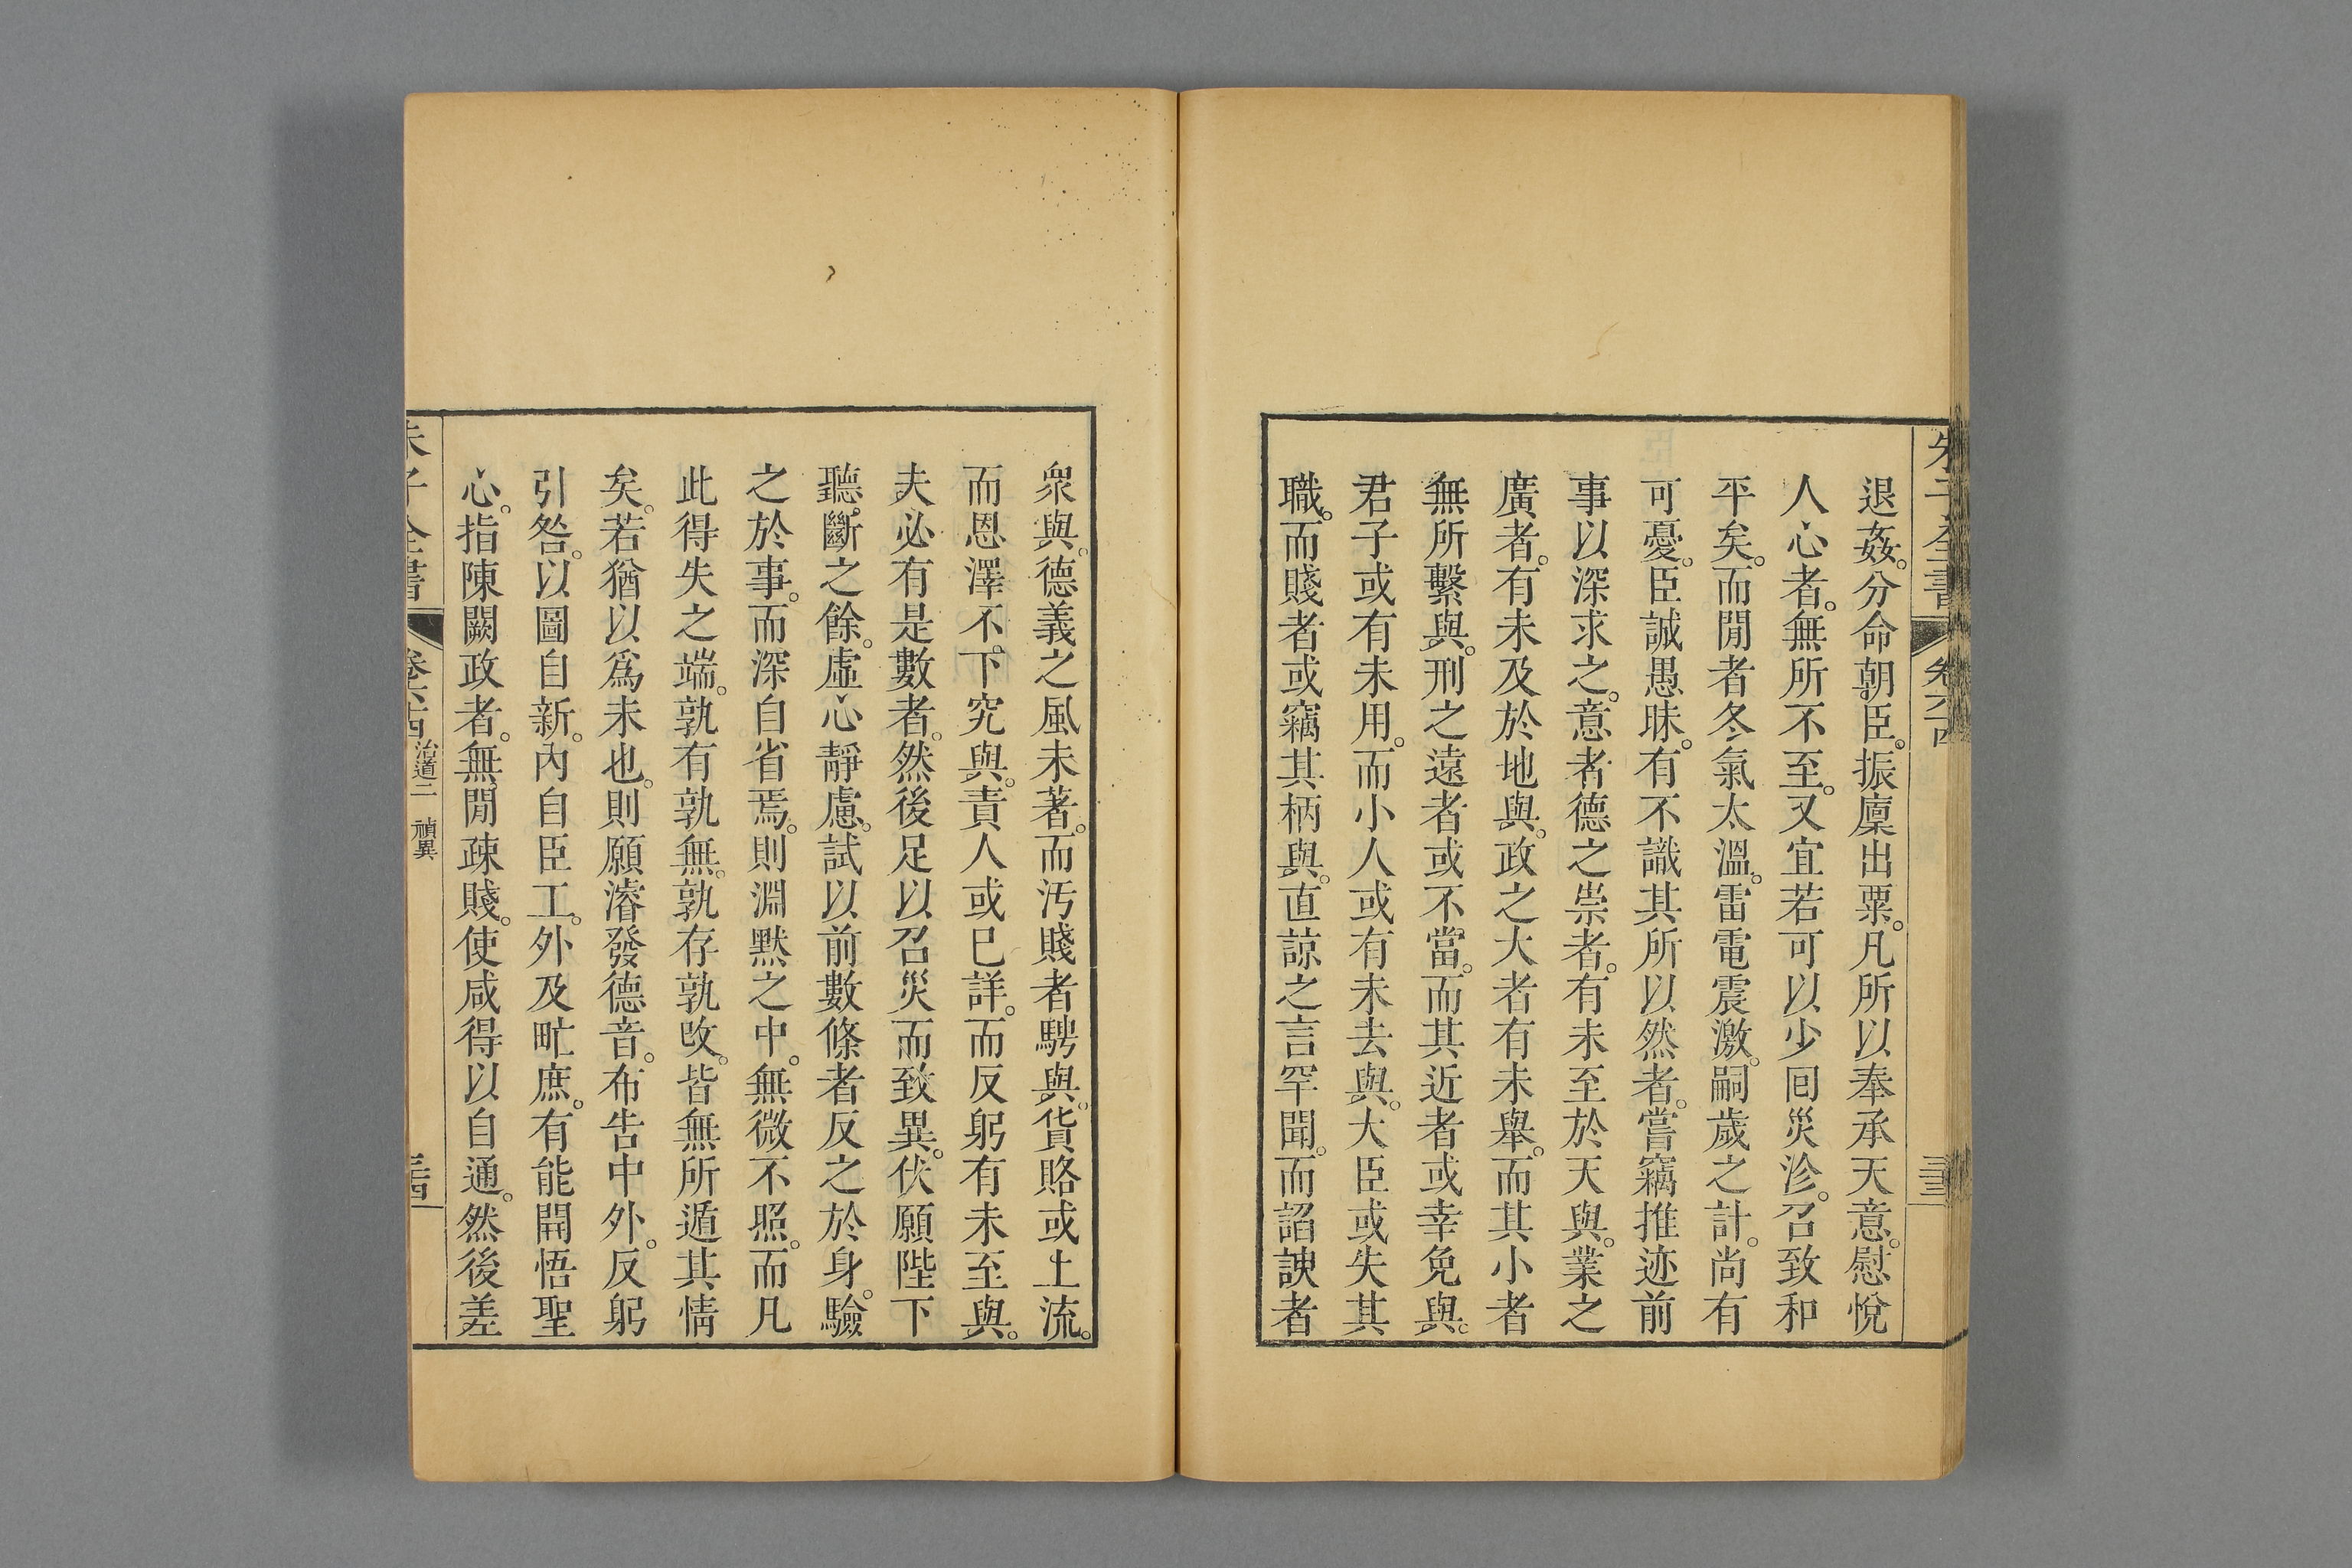 朱子全書 卷六十四 三十三
退姦。分命朝臣。振廩出粟。凡所以奉承天意。慰悅
人心者。無所不至。又宜若可以少囘災沴。召致和
平矣。而閒者冬氣太溫。雷電震激。嗣歲之計。尚有
可憂。臣誠愚昧。有不識其所以然者。嘗竊推迹前
事以深求之。意者德之崇者。有未至於天與。業之
廣者。有未及於地與。政之大者有未舉。而其小者
無所繫與。刑之遠者或不當。而其近者或幸免與。
君子或有未用。而小人或有未去與。大臣或失其
職。而賤者或竊其柄與。直諒之言罕聞。而謟諛者
衆與。德義之風未著。而汚賤者騁與。貨賂或上流。
而恩澤不下究與。責人或已詳。而反躬有未至與。
夫必有是數者。然後足以召災而致異。伏願陛下
聽斷之餘。虛心靜慮。試以前數條者反之於身。驗
之於事。而深自省焉。則淵默之中。無微不照。而凡
此得失之端。孰有孰無。孰存孰改。皆無所遁其情
矣。若猶以爲未也。則願濬發德音。布告中外。反躬
引咎。以圖自新。內自臣工。外及甿庶。有能開悟聖
心。指陳闕政者。無閒疎賤。使咸得以自通。然後差
朱子全書 卷六十四 治道二 禎異 三十四